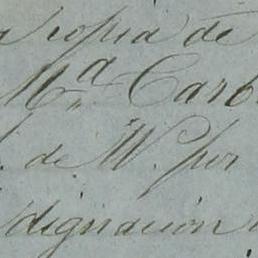 a copia de
Mª Carb
de W. por
dignacion